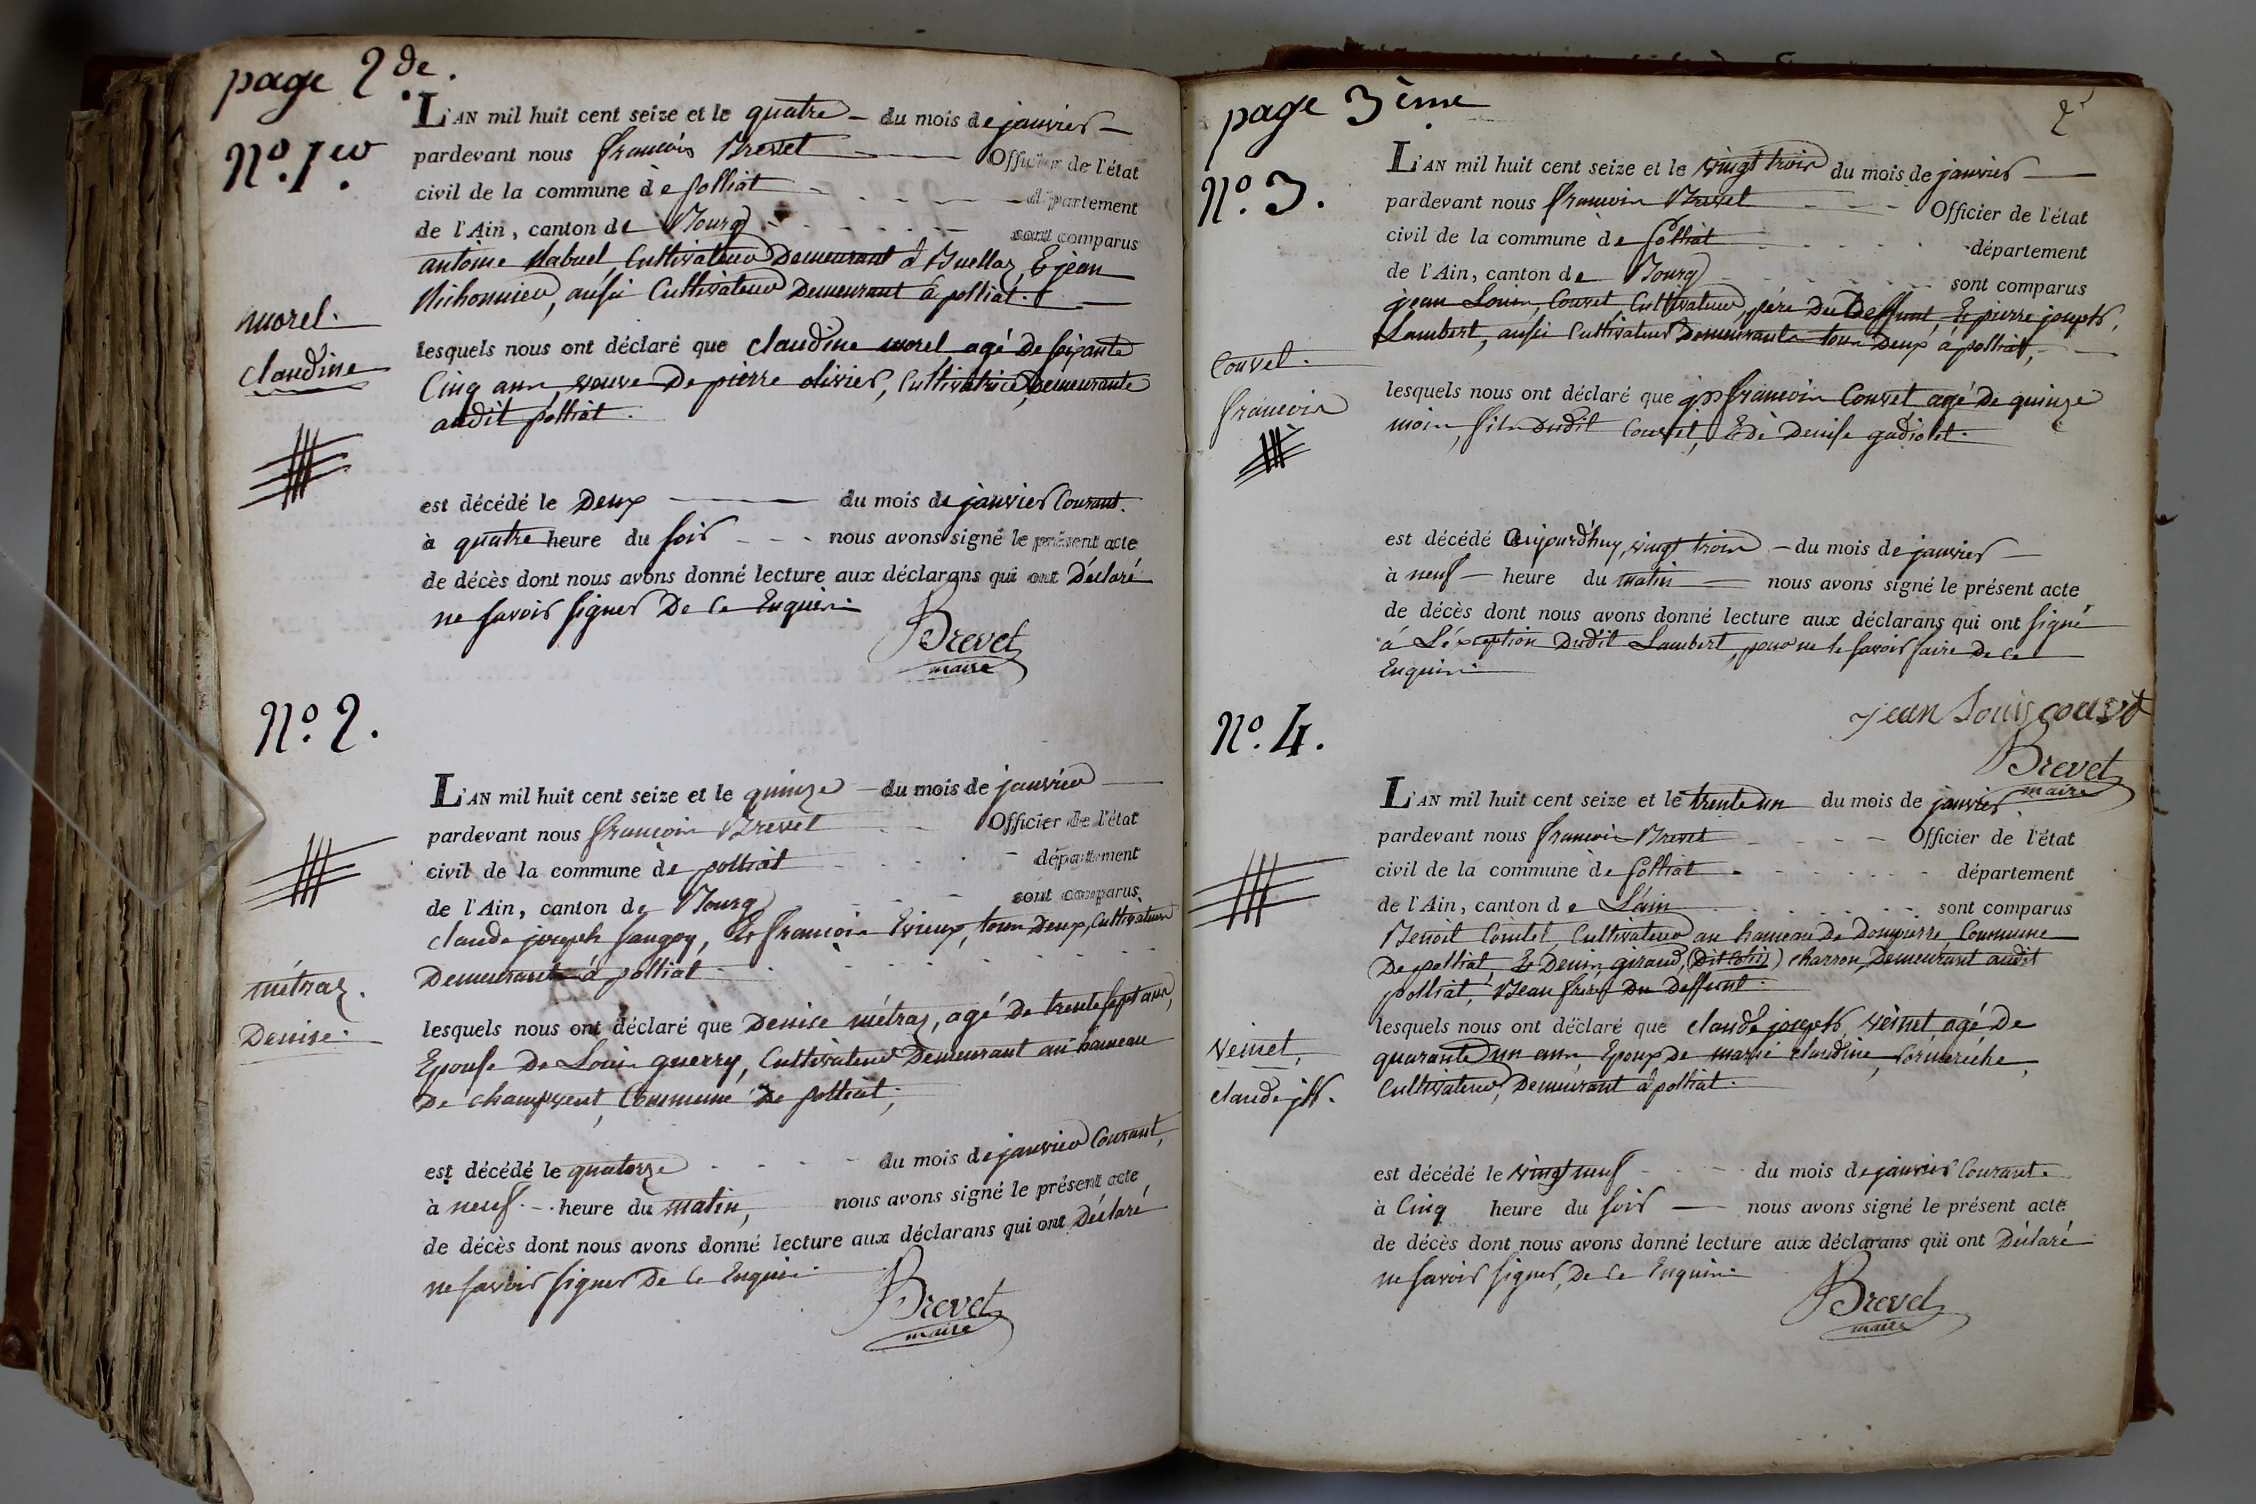 page 2de.
No. 1er.
L'AN mil huit cent seize et le quatre du mois de janvier
pardevant nous françois Brevet Officier de l'état
civil de la commune de polliat département
de l'Ain, canton de Bourg sont comparus
antoine Cultivateur Demeurant à Buellaz, & jean
aussi Cultivateur Demeurant à polliat.
morel.
claudine
lesquels nous ont déclaré que claudine morel agé De soixante
Cinq ans, veuve De pierre olivier, Cultivatrice, Demeurante
audit polliat.
est décédé le Deux du mois de janvier Courant.
à quatre heure du soir nous avons signé le présent acte
de décès dont nous avons donné lecture aux déclarans qui ont Déclaré
ne savoir signer De ce Enquis.
Brevet
maire
No. 2.
L'AN mil huit cent seize et le quinze du mois de janvier
pardevant nous françois Brevet Officier de l'état
civil de la commune de polliat département
de l'Ain, canton de Bourg sont comparus
claude joseph & françois Evieux, tous Deux, Cultivateurs
Demeurants à polliat.
métraz.
Denise.
lesquels nous ont déclaré que Denise métraz, agé De trente sept ans,
Epouse De Louis guerry, Cultivateur Demeurant au hameau
De champvent, Commune De polliat,
est décédé le quatorze du mois de janvier Courant,
à neuf heure du matin, nous avons signé le présent acte
de décès dont nous avons donné lecture aux déclarans qui ont Déclaré
ne savoir signer De ce Enquis.
Brevet
maire
page 3ème
2
No. 3.
L'AN mil huit cent seize et le vingt trois du mois de janvier
pardevant nous françois Brevet Officier de l'état
civil de la commune de polliat département
de l'Ain, canton de Bourg sont comparus
jean Louis, Couvet, Cultivateur, père Du Deffunt, & pierre joseph,
Lambert, aussi Cultivateur Demeurants tous Deux à polliat,
Couvet.
françois
lesquels nous ont déclaré que françois Couvet agé De quinze
mois, fils Dudit Couvet, & De Denise gadiolet.
est décédé aujourd'huy, vingt trois du mois de janvier
à neuf heure du matin nous avons signé le présent acte
de décès dont nous avons donné lecture aux déclarans qui ont signé
à L'éxception Dudit Lambert, pour ne le savoir faire De ce
Enquis.
jean Louis couvet
Brevet
maire
No. 4.
L'AN mil huit cent seize et le trente un du mois de janvier
pardevant nous françois Brevet Officier de l'état
civil de la commune de polliat département
de l'Ain, canton de L'ain sont comparus
Benoit Comtet, Cultivateur au hameau De Dompierre, Commune
De polliat, & Denis giraud, charron, Demeurant audit
polliat, Beau frere Du Deffunt.
veinet,
claude jh.
lesquels nous ont déclaré que claude joseph, veinet agé De
quarante un ans Epoux De marie claudine
Cultivateur, Demeurant à polliat.
est décédé le vingt neuf du mois de janvier Courant.
à Cinq heure du soir nous avons signé le présent acte
de décès dont nous avons donné lecture aux déclarans qui ont Déclaré
ne savoir signer, De ce Enquis.
Brevet
maire